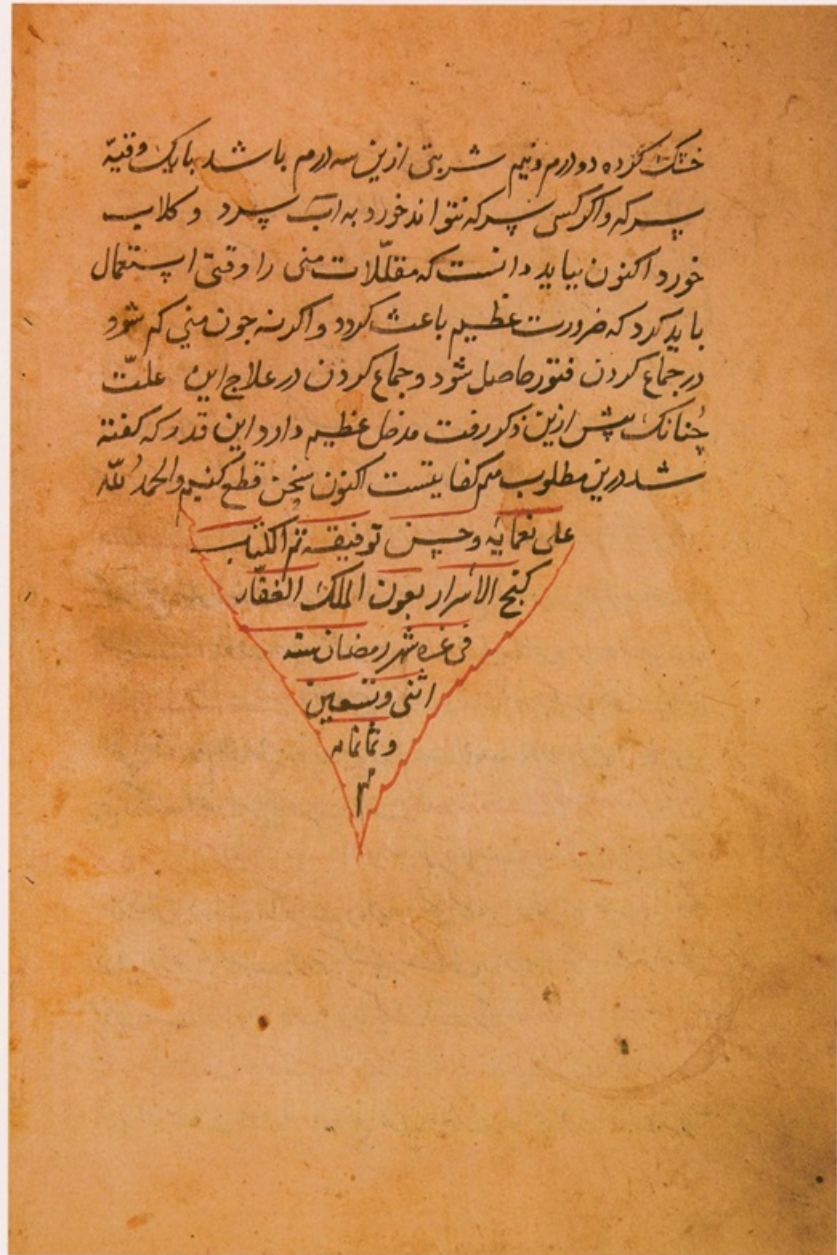 خشک کرده دو درم و نیم شربتی ازین سه درم باشد با یک وقیّه
سرکه و اکر کسی سرکه نتواند خورد به آب سرد و کلاب
خورد اکنون بباید دانست که مقلّلات منی را وقتی استعمال
باید کرد که ضرورت عظیم باعث کردد و اکرنه جون منی کم شود
در جماع کردن فتور حاصل شود و جماع کردن در علاج این علّت
چنانک پیش ازین ذکر رفت مدخل عظیم دارد این قدر که کفته
شد درین مطلوب هم کفایتست اکنون سخن قطع کنیم والحمد لله
علی نعمایه و حسن توفیقه تم الکتاب
کنج الاسرار بعون الملک الغفّار
فی غره شهر رمضان سنه
اثنی و تسعین
و ثمانمایه
م